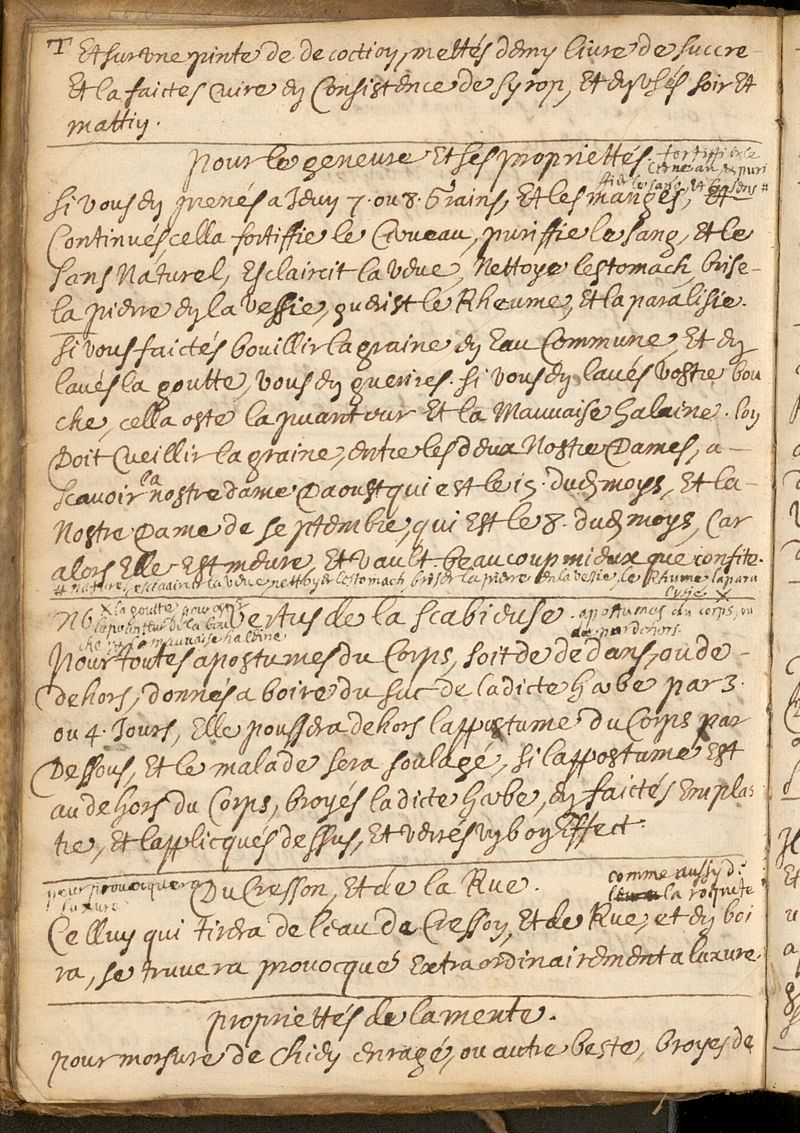 T Et sur une pinte de decoction, mettés demy livre de succre
Et la faictes cuire en Consistence de Syrop, Et en usés soir Et
mattin.
Pour le geneure Et ses propriettés. fortiffie le
Cerveau, puri
ffie le sang, et le sens #
Si vous en prenés a Jeun 7. ou 8. Grains, Et les mangés, Et
Continués cella fortiffie le Cerveau, puriffie le sang, Et le
sans Naturel, Esclaircit la veue, Nettoye lestomach, brise
la pierre en la vessie, guerist le Rheume, Et la paralisie.
Si vous faictés bouillir la graine en Eau Commune, Et en
lavés la goutte, vous en guerires. Si vous en lavés vostre bou
che, cella oste la puanteur Et la Mauvaise halaine. Lon
Doit Cueillir la graine, entre les deux Nostre Dames, a
scavoir la nostre dame Daoust qui est le 15. dud. moys, Et la
Nostre Dame de septembre, qui Est le 8. dud. moys, Car
alors Elle Est meure, Et vault beaucoup mieux que confite.
# naturel, esclaircir la veue, nettoyer lestomach, briser la pierre en la vessie, le Rhume la para
lisie X
Nb X la goutte pour oster
la puanteur de la bou
che et la mauvaise haleine
Vertus de la Scabieuse. apostumes du corps, ou
de par dehors.
Pour toutes apostumes du Corps, soit de dedans, ou de
dehors, donnés a boire du suc de ladicte herbe par 3.
ou 4. Jours, Elle poussera dehors lappostume du Corps par
Dessous, Et le malade sera soulagé, si lappostume Est
au dehors du Corps, broyés ladicte herbe, en faictés Emplas
tre, Et lapplicqués dessus, Et verrés un bon Effect.
pour provocquer a
luxure
Du Cresson, Et de la Rue.
comme aussy d.
la roquete
Celluy qui tirera de leau de Cresson, Et de Rue, et en boi
ra, se truvera provocqué extraordinairement a luxure.
propriettés de la mente.
pour morsure de chien enragé, ou autre beste, broyes de